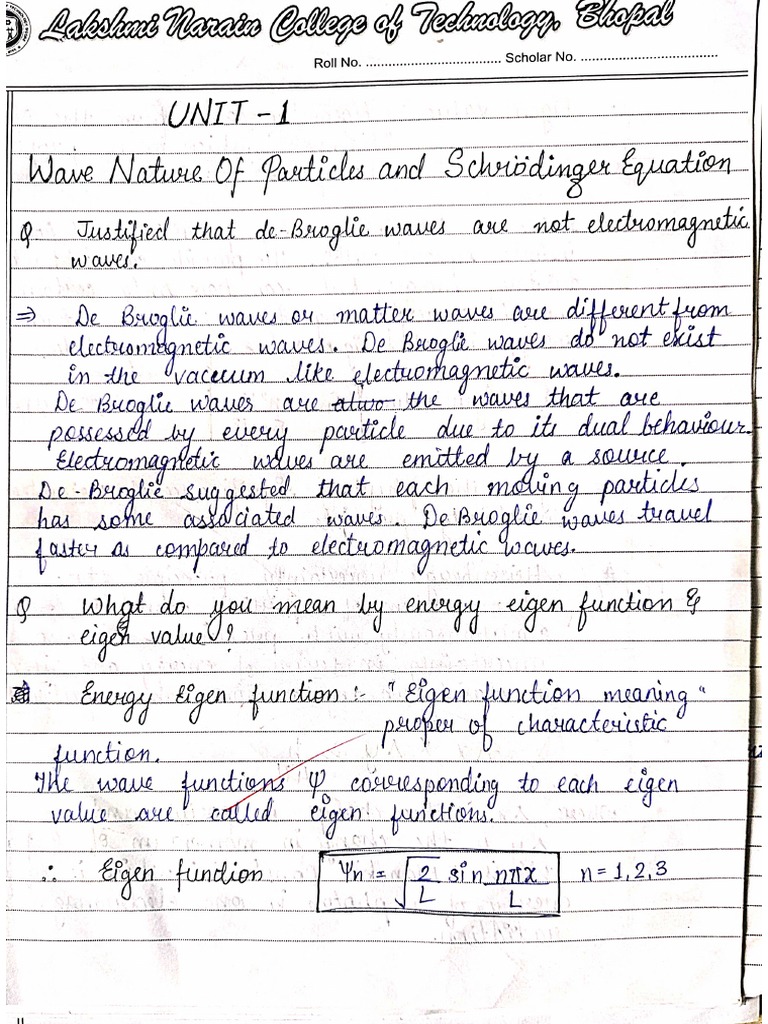 Lakshmi Narain College of Technology, Bhopal
Roll No. .................................... Scholar No. ....................................
UNIT - 1
Wave Nature Of Particles and Schrödinger Equation
Q Justified that de-Broglie waves are not electromagnetic
waves.
⇒ De Broglie waves or matter waves are different from
electromagnetic waves. De Broglie waves do not exist
in the vaccum like electromagnetic waves.
De Broglie waves are the waves that are
possessed by every particle due to its dual behaviour.
Electromagnetic waves are emitted by a source.
De-Broglie suggested that each moving particles
has some associated waves. De Broglie waves travel
faster as compared to electromagnetic waves.
Q What do you mean by energy eigen function &
eigen value?
Energy Eigen function :- "Eigen function meaning"
proper of characteristic
function.
The wave functions ψ corresponding to each eigen
value are called eigen functions.
∴ Eigen function ψn = √2/L sin nπx/L n = 1, 2, 3